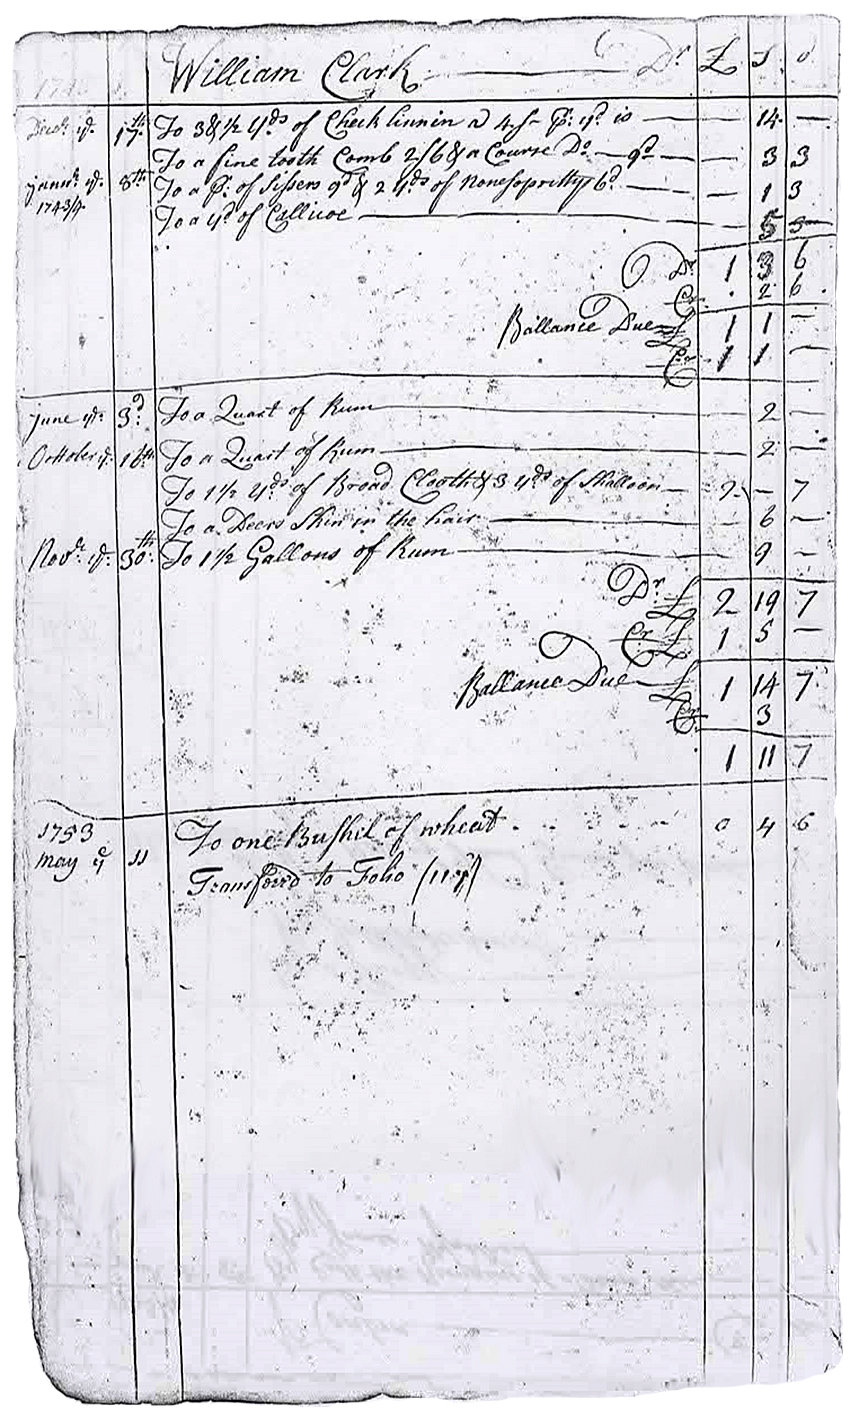 William Clark Dr £ S d
Decbr ye 17th To 3 & ½ Yds of Check linnin a 4/- pr yd is — 14 —
To a fine tooth Comb 2/6 & a Course Do 9d — 3 3
Janry ye 8th To a pr of Sissers 9d & 2 Yds of Nonesopritty 6d — 1 3
1743/4
To a yd of Callicoe — 5
Dr 1 3 6
Cr . 2 6
Ballance Due £ 1 1 —
Cr 1 1 —
June ye 3d To a Quart of Rum 2 —
Octtober ye 16th To a Quart of Rum — 2 —
To 1½ Yds of Broad Clooth & 3 Yds of Shalloon — 2 — 7
To a Deers Skin in the hair — 6 —
Novr ye 30th To 1½ Gallons of Rum — 9 —
Dr £ 2 19 7
Cr £ 1 5 —
Ballance Due £ 1 14 7
Cr 3
1 11 7
1753
may ye 11 To one Bushel of wheat 0 4 6
Transferd to Folio